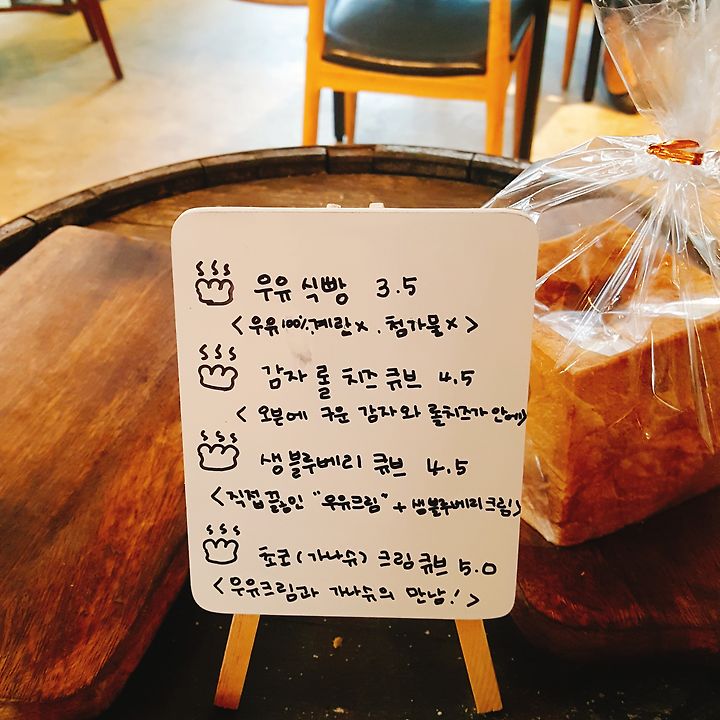 우유 식빵 3.5
<우유100%.계란x. 첨가물x>
감자 롤 치즈 큐브 4.5
<오븐에 구운 감자와 롤치즈가 안에>
생블루베리 큐브 4.5
<직접 끓인 "우유크림" + 생블루베리크림>
쵸코(가나슈) 크림큐브 5.0
<우유크림과 가나슈의 만남!>